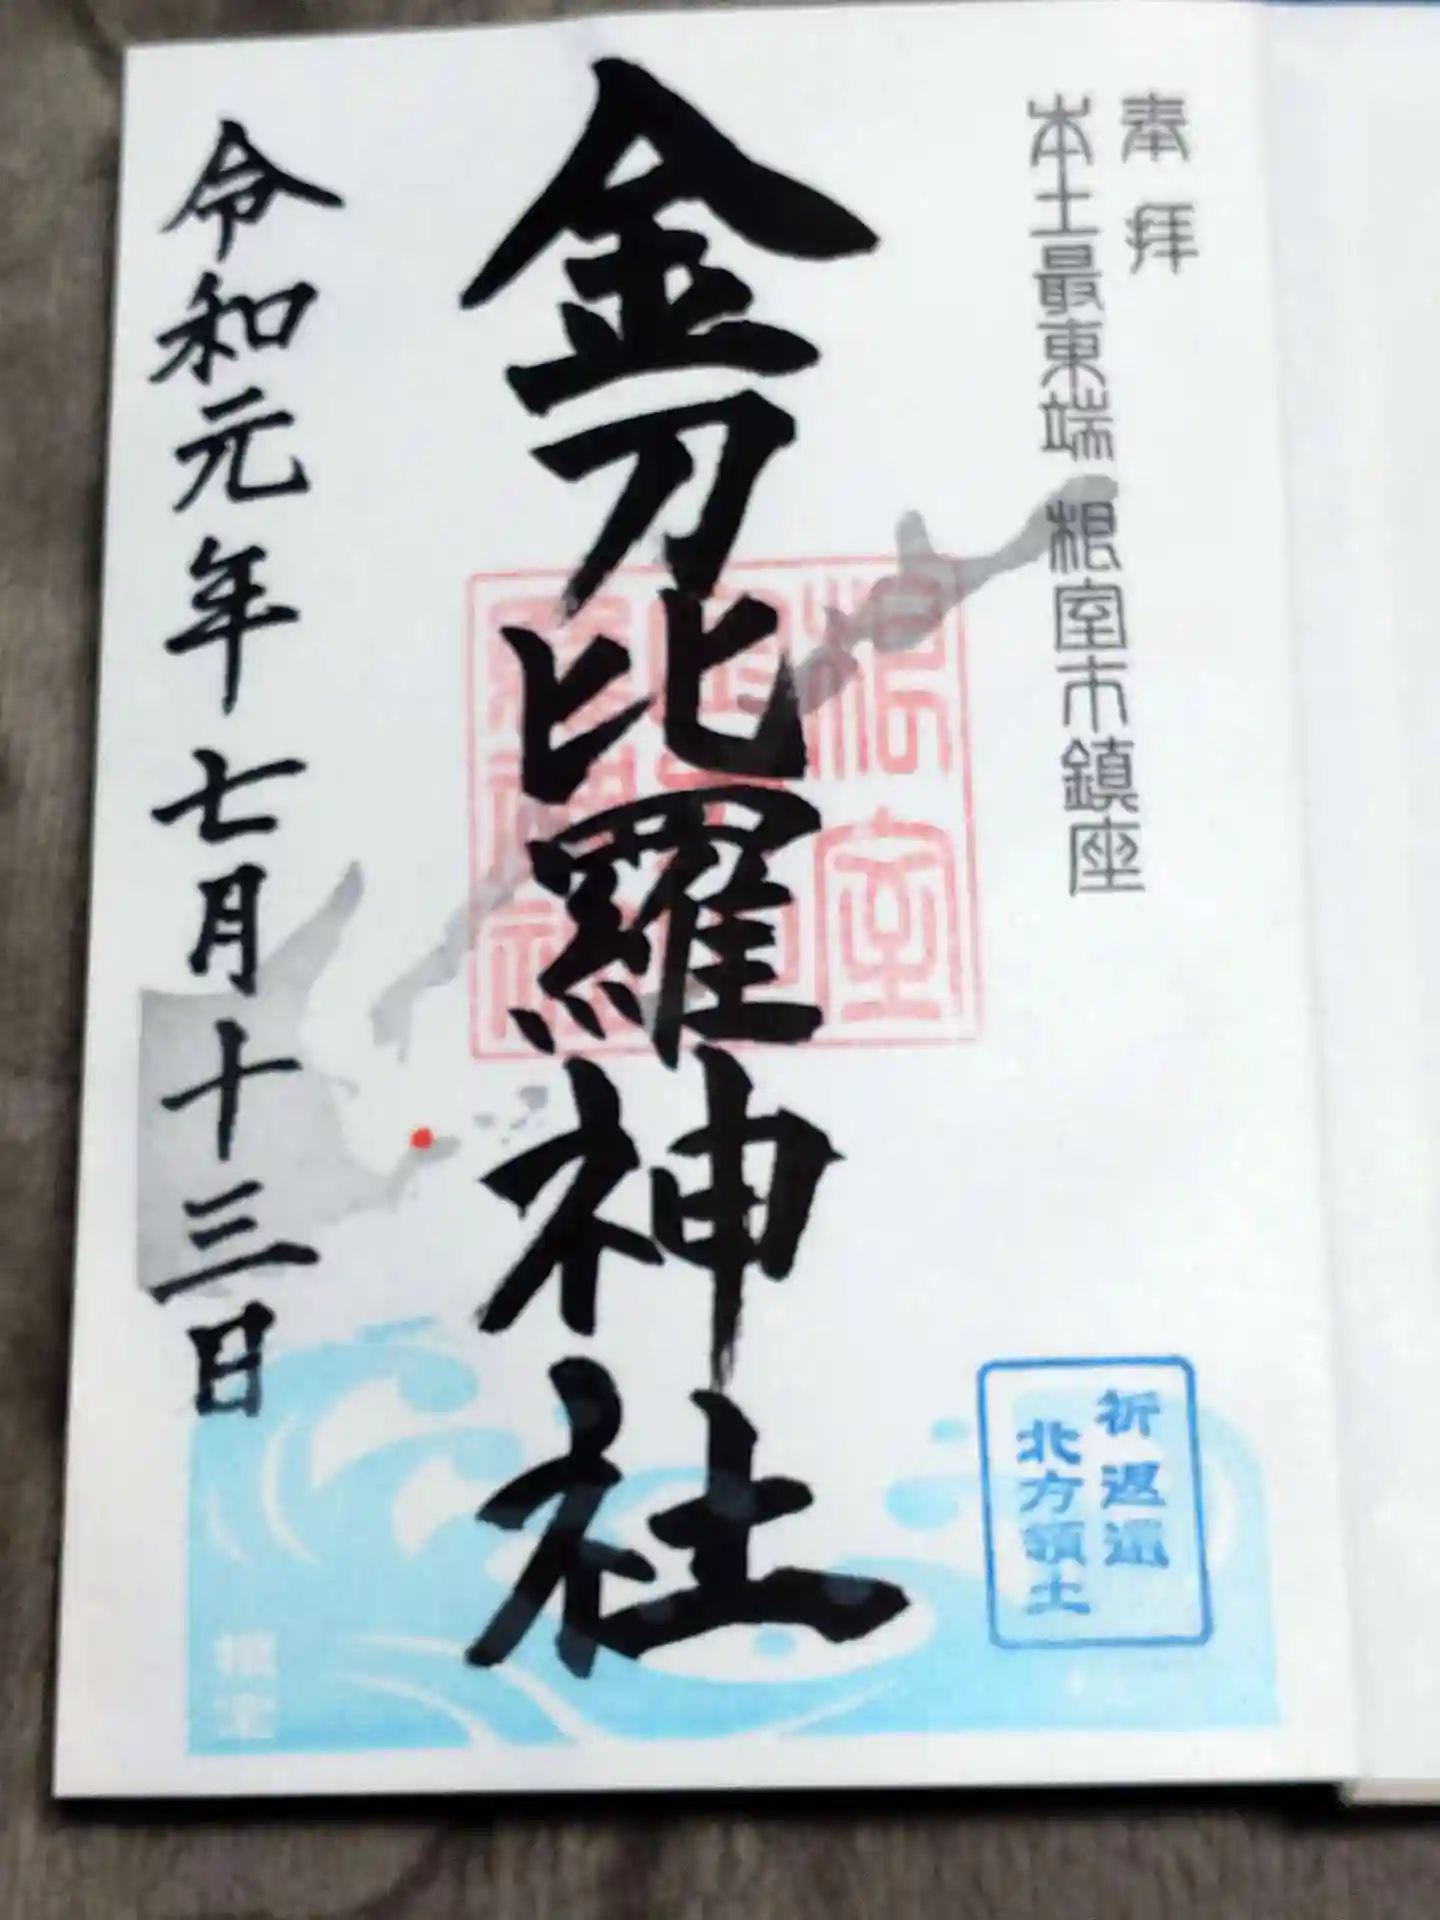 奉拝
本土最東端 根室市鎮座
金刀比羅神社
令和元年七月十三日
祈返還
北方領土
根室